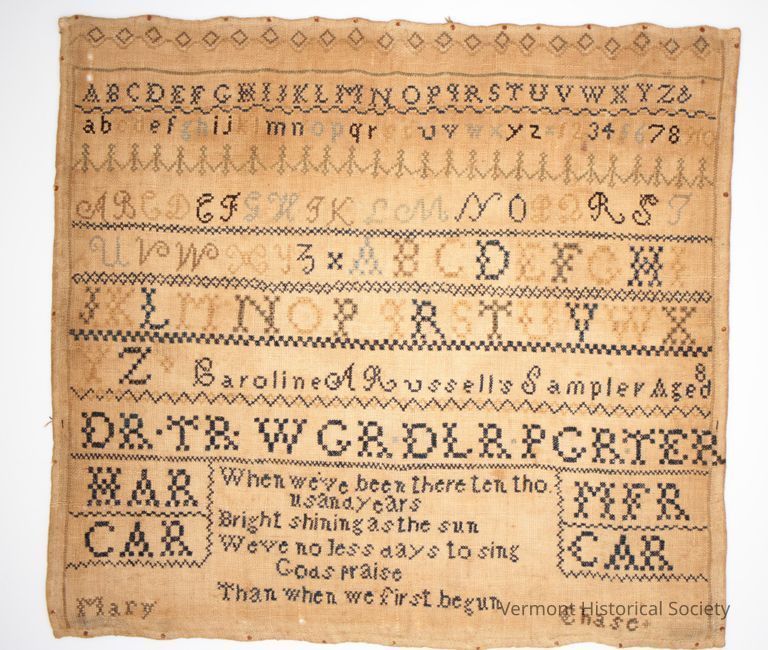 ABCDEFGHIJKLMNOPQRSTUVWXYZ&
abcdefghijklmnopqr uvwxyz 12345678
ABCDEFGHIKLMNOPDRST
UVWXYZ x ABCDEFGHI
JKLMNOP qRSTUVWX
YZ Caroline A Russell's Sampler Aged 8
DR·TR WGR·DLRPGRTER
HAR
CAR
When we've been there ten tho
usand years
Bright shining as the sun
We've no less days to sing
Gods praise
Than when we first begun
MFR
CAR
Mary Chase
Vermont Historical Society